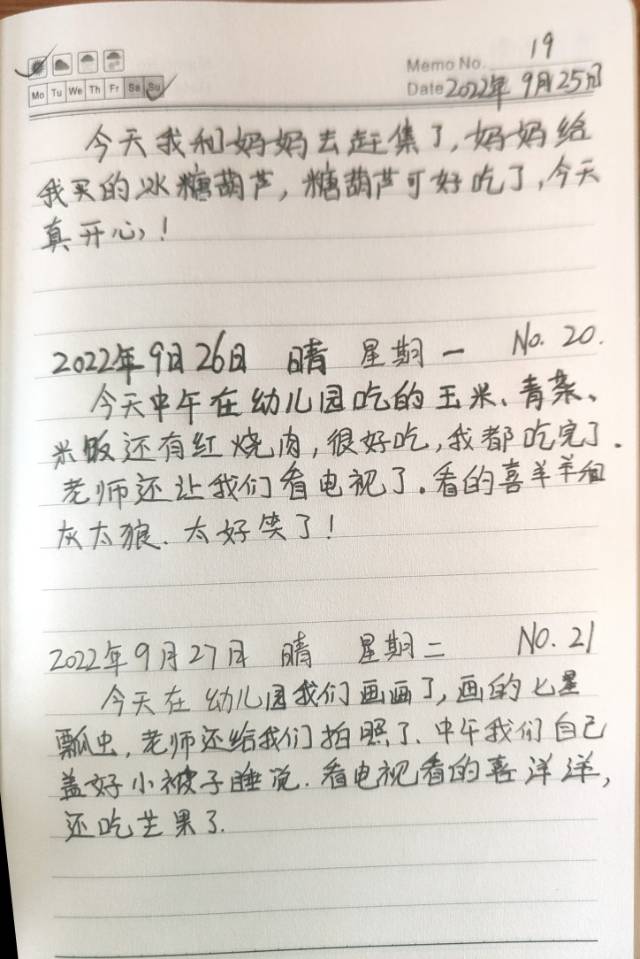 Memo No. 19
Mo Tu We Th Fr Sa Su
Date 2022年9月25日
今天我和妈妈去赶集了,妈妈给
我买的冰糖葫芦,糖葫芦可好吃了,今天
真开心!
2022年9月26日 晴 星期一 No. 20.
今天中午在幼儿园吃的玉米、青菜、
米饭还有红烧肉,很好吃,我都吃完了.
老师还让我们看电视了.看的喜羊羊和
灰太狼.太好笑了!
2022年9月27日 晴 星期二 NO. 21
今天在幼儿园我们画画了,画的七星
瓢虫,老师还给我们拍照了.中午我们自己
盖好小被子睡觉.看电视看的喜洋洋,
还吃芒果了.